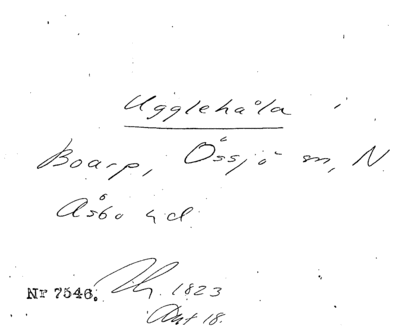 Ugglehåla i
Boarp, Össjö sn, N
Åsbo hd
Nr 7546. 1823
18.